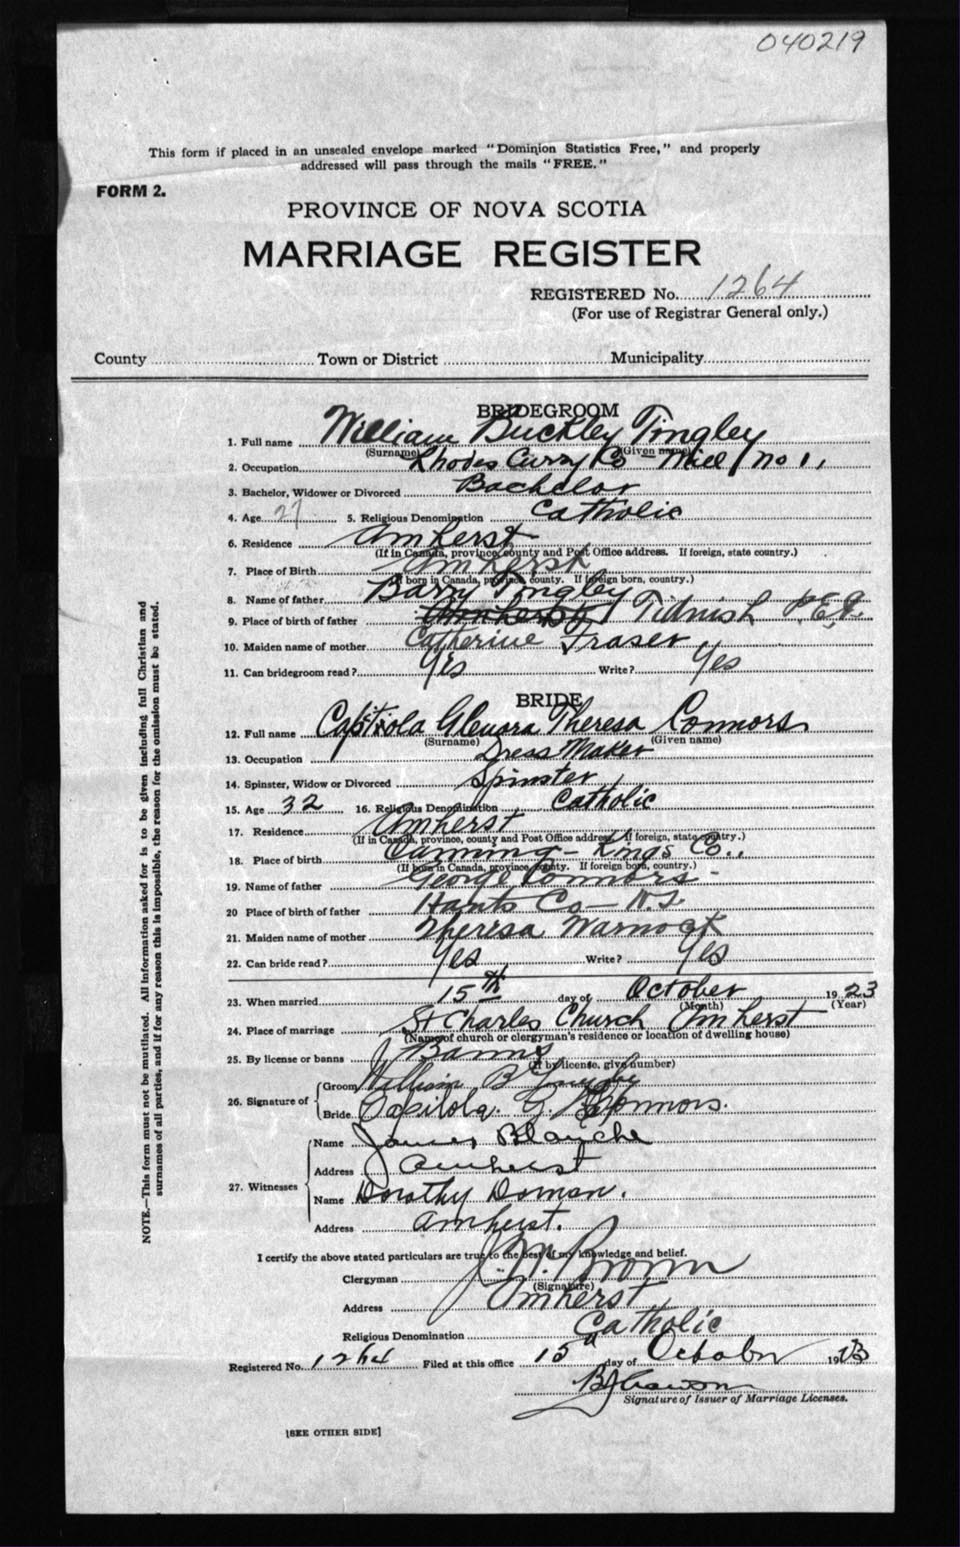 040219
This form if placed in an unsealed envelope marked "Dominion Statistics Free," and properly
addressed will pass through the mails "FREE."
FORM 2.
PROVINCE OF NOVA SCOTIA
MARRIAGE REGISTER
REGISTERED No. 1264
(For use of Registrar General only.)
County Town or District Municipality
BRIDEGROOM
1. Full name William Buckley Tingley
(Surname) (Given name)
2. Occupation Rhodes Curry Co Mill No 1,
3. Bachelor, Widower or Divorced Bachelor
4. Age 27 5. Religious Denomination Catholic
6. Residence Amherst
(If in Canada, province, county and Post Office address. If foreign, state country.)
7. Place of Birth Amherst
(If born in Canada, province, county. If foreign born, country.)
8. Name of father Barry Tingley
9. Place of birth of father Tidnish P.E.I.
10. Maiden name of mother Catherine Fraser
11. Can bridegroom read? Yes Write? Yes
BRIDE
12. Full name Theresa Connors
(Surname) (Given name)
13. Occupation Dress Maker
14. Spinster, Widow or Divorced Spinster
15. Age 32 16. Religious Denomination Catholic
17. Residence Amherst
(If in Canada, province, county and Post Office address. If foreign, state country.)
18. Place of birth Canning - Kings Co.,
(If born in Canada, province, county. If foreign born, country.)
19. Name of father George Connors -
20 Place of birth of father Hants Co - N.S.
21. Maiden name of mother Theresa Warnock
22. Can bride read? Yes Write? Yes
23. When married 15th day of October 1923
(Month) (Year)
24. Place of marriage St Charles Church Amherst
(Name of church or clergyman's residence or location of dwelling house)
25. By license or banns Banns
(If by license, give number)
26. Signature of Groom William B Tingley
Bride Capitola G. Connors.
27. Witnesses Name James Blanche
Address Amherst
Name Dorothy Doman.
Address Amherst.
I certify the above stated particulars are true to the best of my knowledge and belief.
Clergyman J. W. Brown
(Signature)
Address Amherst
Religious Denomination Catholic
Registered No. 1264 Filed at this office 15th day of October 1923
Signature of Issuer of Marriage Licenses.
[SEE OTHER SIDE]
NOTE.—This form must not be mutilated. All information asked for is to be given including full Christian and
surnames of all parties, and if for any reason this is impossible, the reason for the omission must be stated.